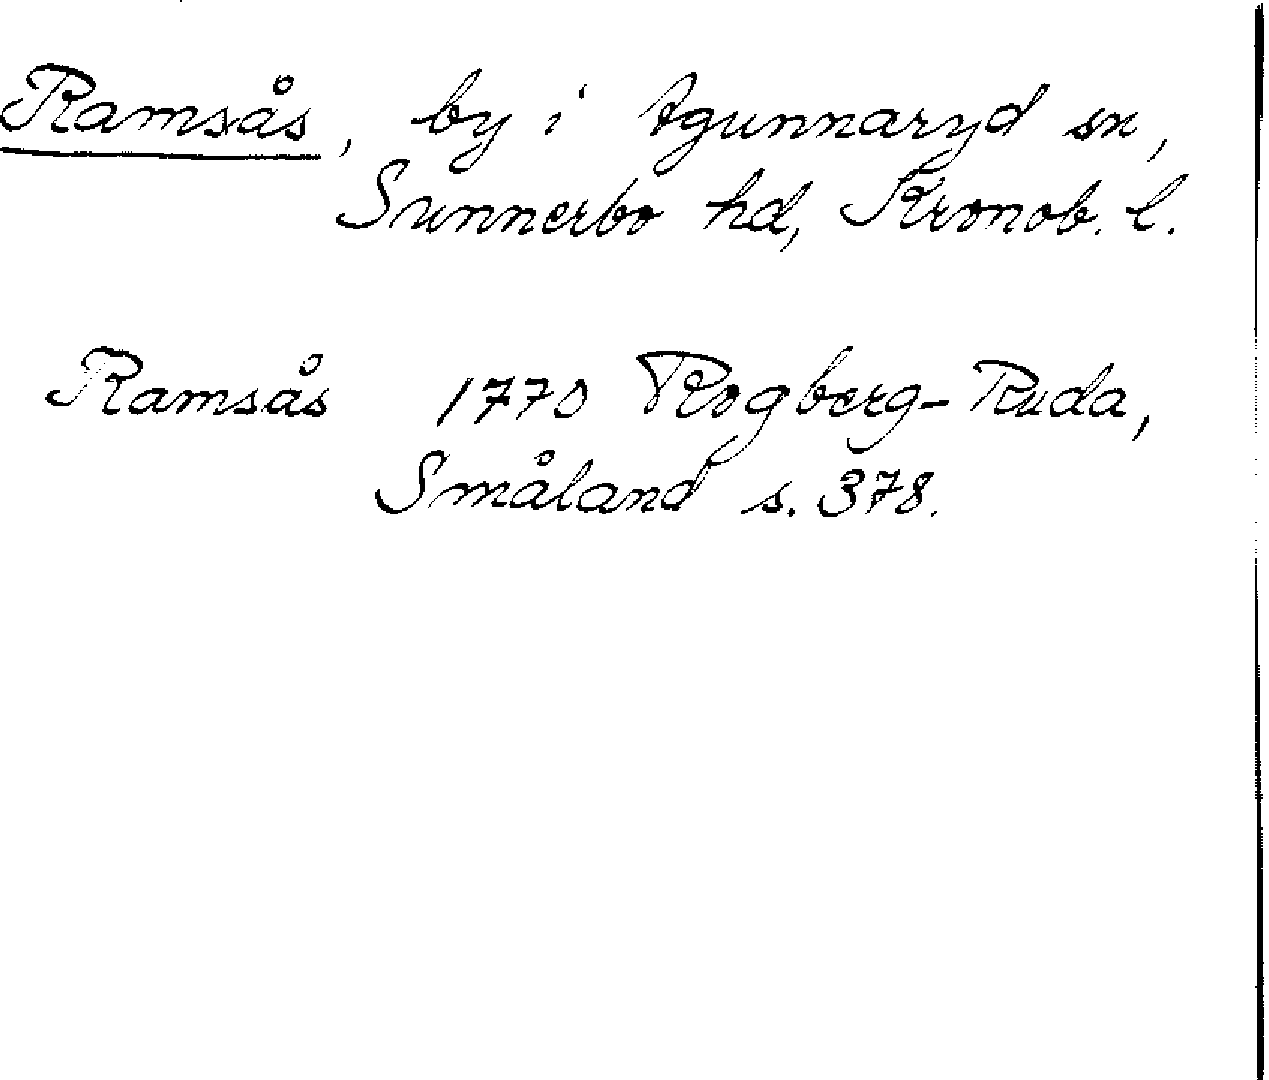 Ramsås, by i Agunnaryd sn,
Sunnerbo hd, Kronob. l.
Ramsås 1770 Rogberg-Ruda,
Småland s. 378.